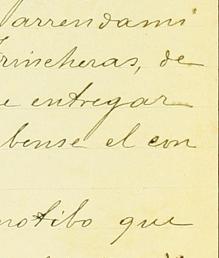 arrendami
Trincheras, de
e entregar
bense el con
motibo que